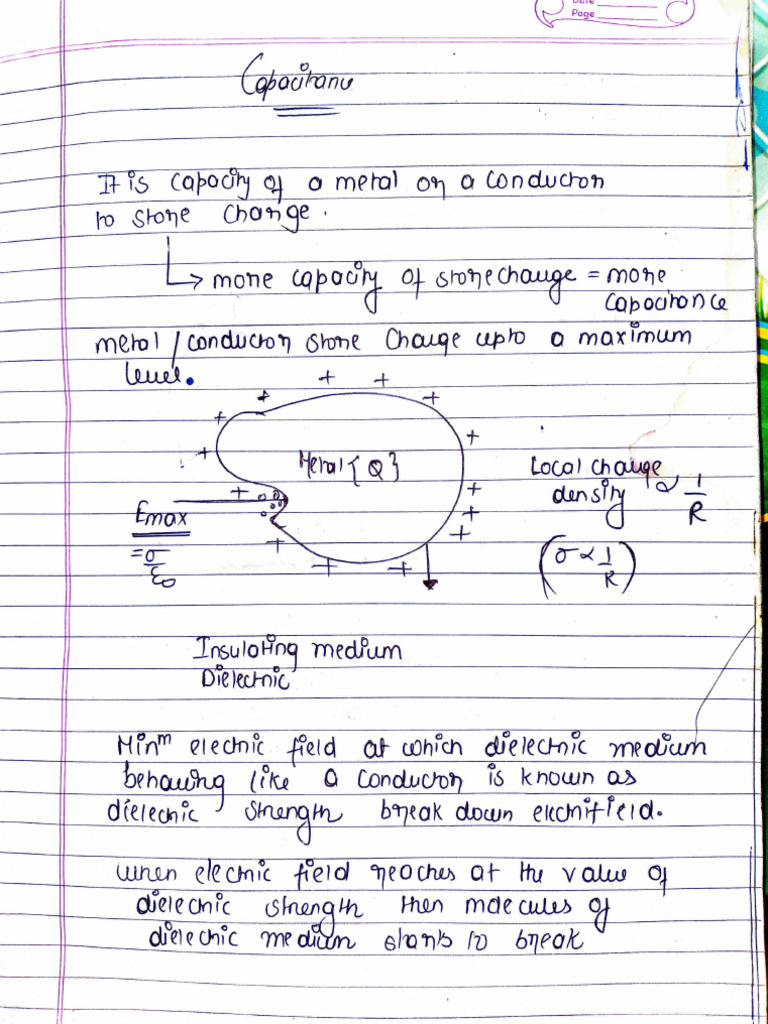 Date
Page
Capacitance
It is capacity of a metal or a conductor
to store charge.
more capacity of store charge = more
capacitance
metal / conductor store charge upto a maximum
level.
+ + + + + + +
Metal {Q}
Local charge
density ∝ 1/R
+ + + +
Emax
= σ/ε0
+ + + +
(σ ∝ 1/R)
Insulating medium
Dielectric
Minm electric field at which dielectric medium
behaving like a conductor is known as
dielectric strength break down electrifield.
when electric field reaches at the value of
dielectric strength then molecules of
dielectric medium starts to break